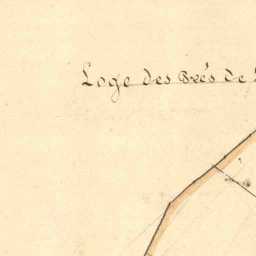 Loge des Prés de